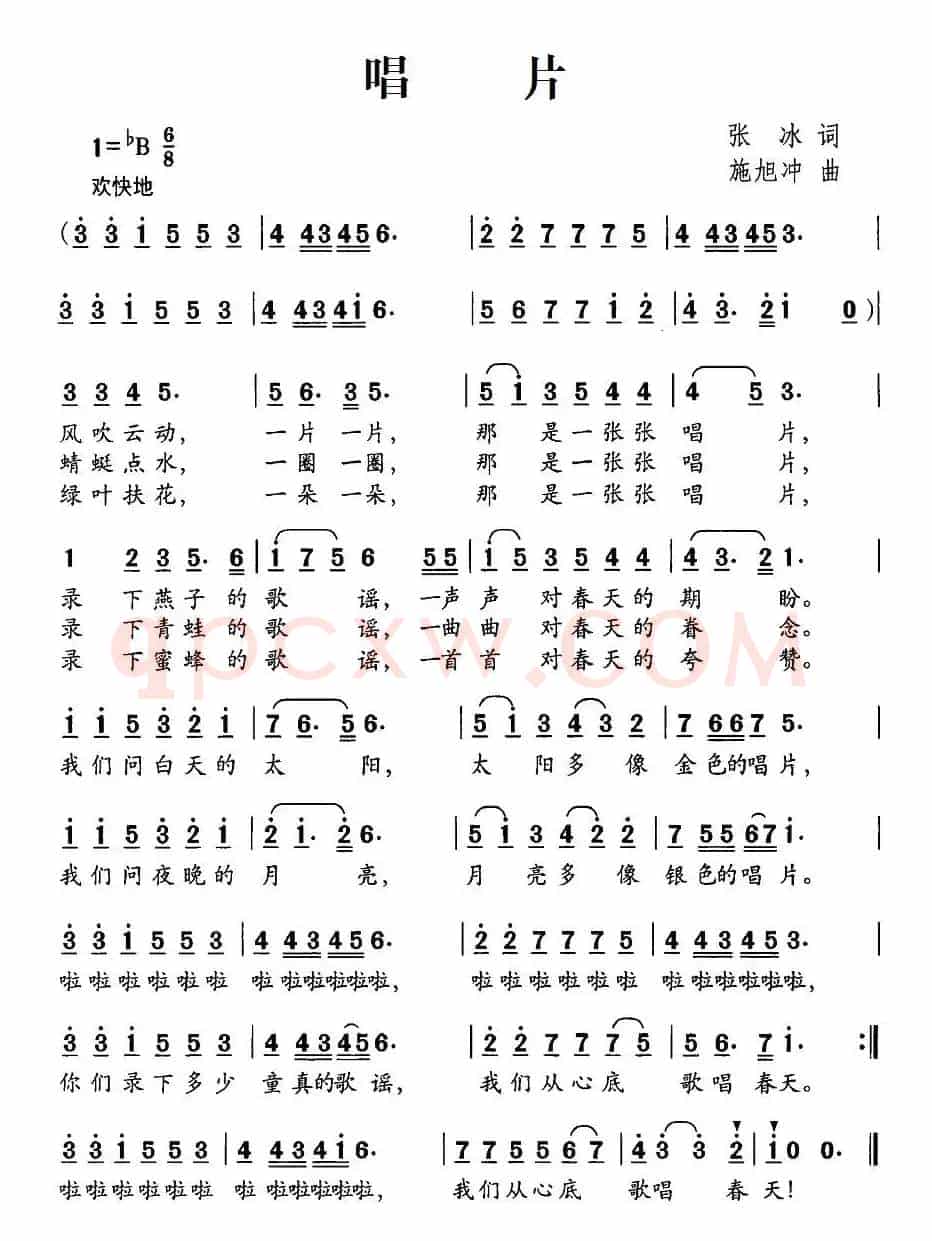 唱 片
1=♭B 6/8
张 冰 词
欢快地
施旭冲 曲
(3̇ 3̇ 1̇ 5 5 3 | 4 4 3 4 5 6. | 2̇ 2̇ 7 7 7 5 | 4 4 3 4 5 3. |
3̇ 3̇ 1̇ 5 5 3 | 4 4 3 4 1̇ 6. | 5 6 7 7 1̇ 2̇ | 4̇ 3̇. 2̇ 1̇ 0 )|
3 3 4 5. | 5 6. 3 5. | 5 1̇ 3 5 4 4 | 4 5 3. |
风吹云动, 一片一片, 那 是一张张 唱 片,
蜻蜓点水, 一圈一圈, 那 是一张张 唱 片,
绿叶扶花, 一朵一朵, 那 是一张张 唱 片,
1 2 3 5. 6 | 1̇ 7 5 6 5 5 | 1̇ 5 3 5 4 4 | 4 3. 2 1. |
录 下燕子的歌 谣, 一声声 对春天的期 盼。
录 下青蛙的歌 谣, 一曲曲 对春天的眷 念。
录 下蜜蜂的歌 谣, 一首首 对春天的夸 赞。
qpcxw.com
1̇ 1̇ 5 3̇ 2̇ 1̇ | 7 6. 5 6. | 5 1̇ 3 4 3 2 | 7 6 6 7 5. |
我们问白天的太 阳, 太 阳多 像 金色的唱片,
1̇ 1̇ 5 3̇ 2̇ 1̇ | 2̇ 1̇. 2̇ 6. | 5 1̇ 3 4 2̇ 2̇ | 7 5 5 6 7 1̇. |
我们问夜晚的月 亮, 月 亮多 像 银色的唱 片。
3̇ 3̇ 1̇ 5 5 3 | 4 4 3 4 5 6. | 2̇ 2̇ 7 7 7 5 | 4 4 3 4 5 3. |
啦啦啦啦啦啦 啦啦啦啦啦啦, 啦啦啦啦啦啦 啦啦啦啦啦啦,
3̇ 3̇ 1̇ 5 5 3 | 4 4 3 4 5 6. | 2̇ 2̇ 7 7 7 5 | 5 6. 7 1̇. :‖
你们录下多少 童真的歌谣, 我们从心底 歌唱 春天。
3̇ 3̇ 1̇ 5 5 3 | 4 4 3 4 1̇ 6. | 7 7 5 5 6 7 | 4̇ 3̇ 3̇ 2̇ | 1̇ 0 0. ‖
啦啦啦啦啦啦 啦啦啦啦啦啦, 我们从心底 歌唱 春 天!